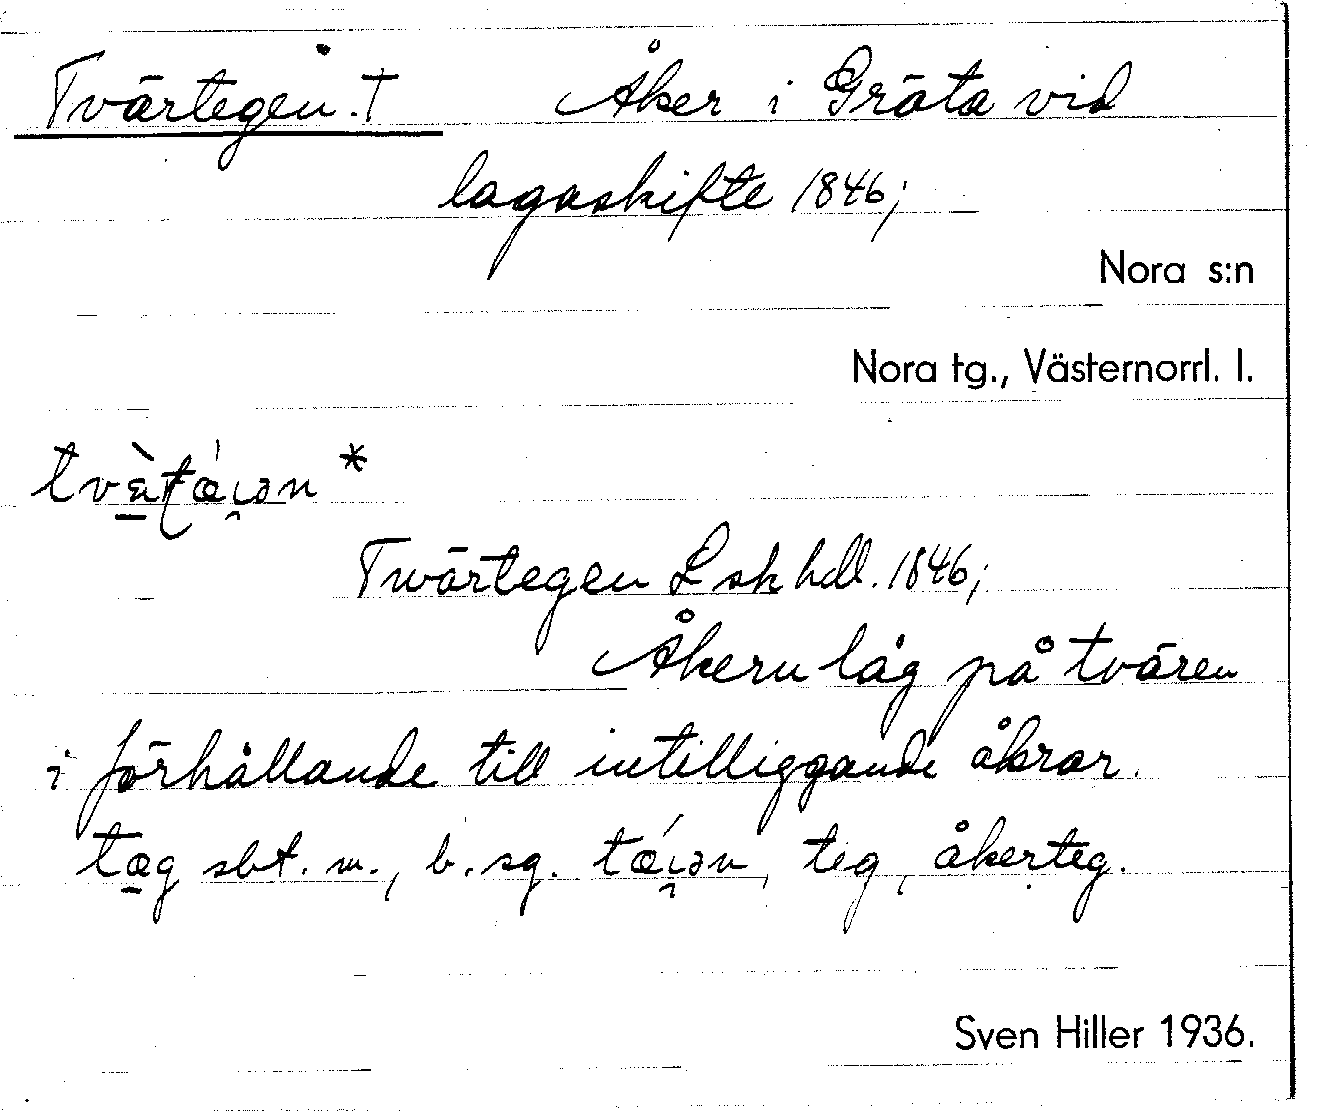 Tvärtegen. † Åker i Gräta vid
lagaskifte 1846;
Nora s:n
Nora tg., Västernorrl. l.
*
Twärtegen L sk hdl. 1846;
Åkern låg på tvären
i förhållande till intilliggande åkrar.
tæg sbt. m., b. sg. teg, åkerteg.
Sven Hiller 1936.